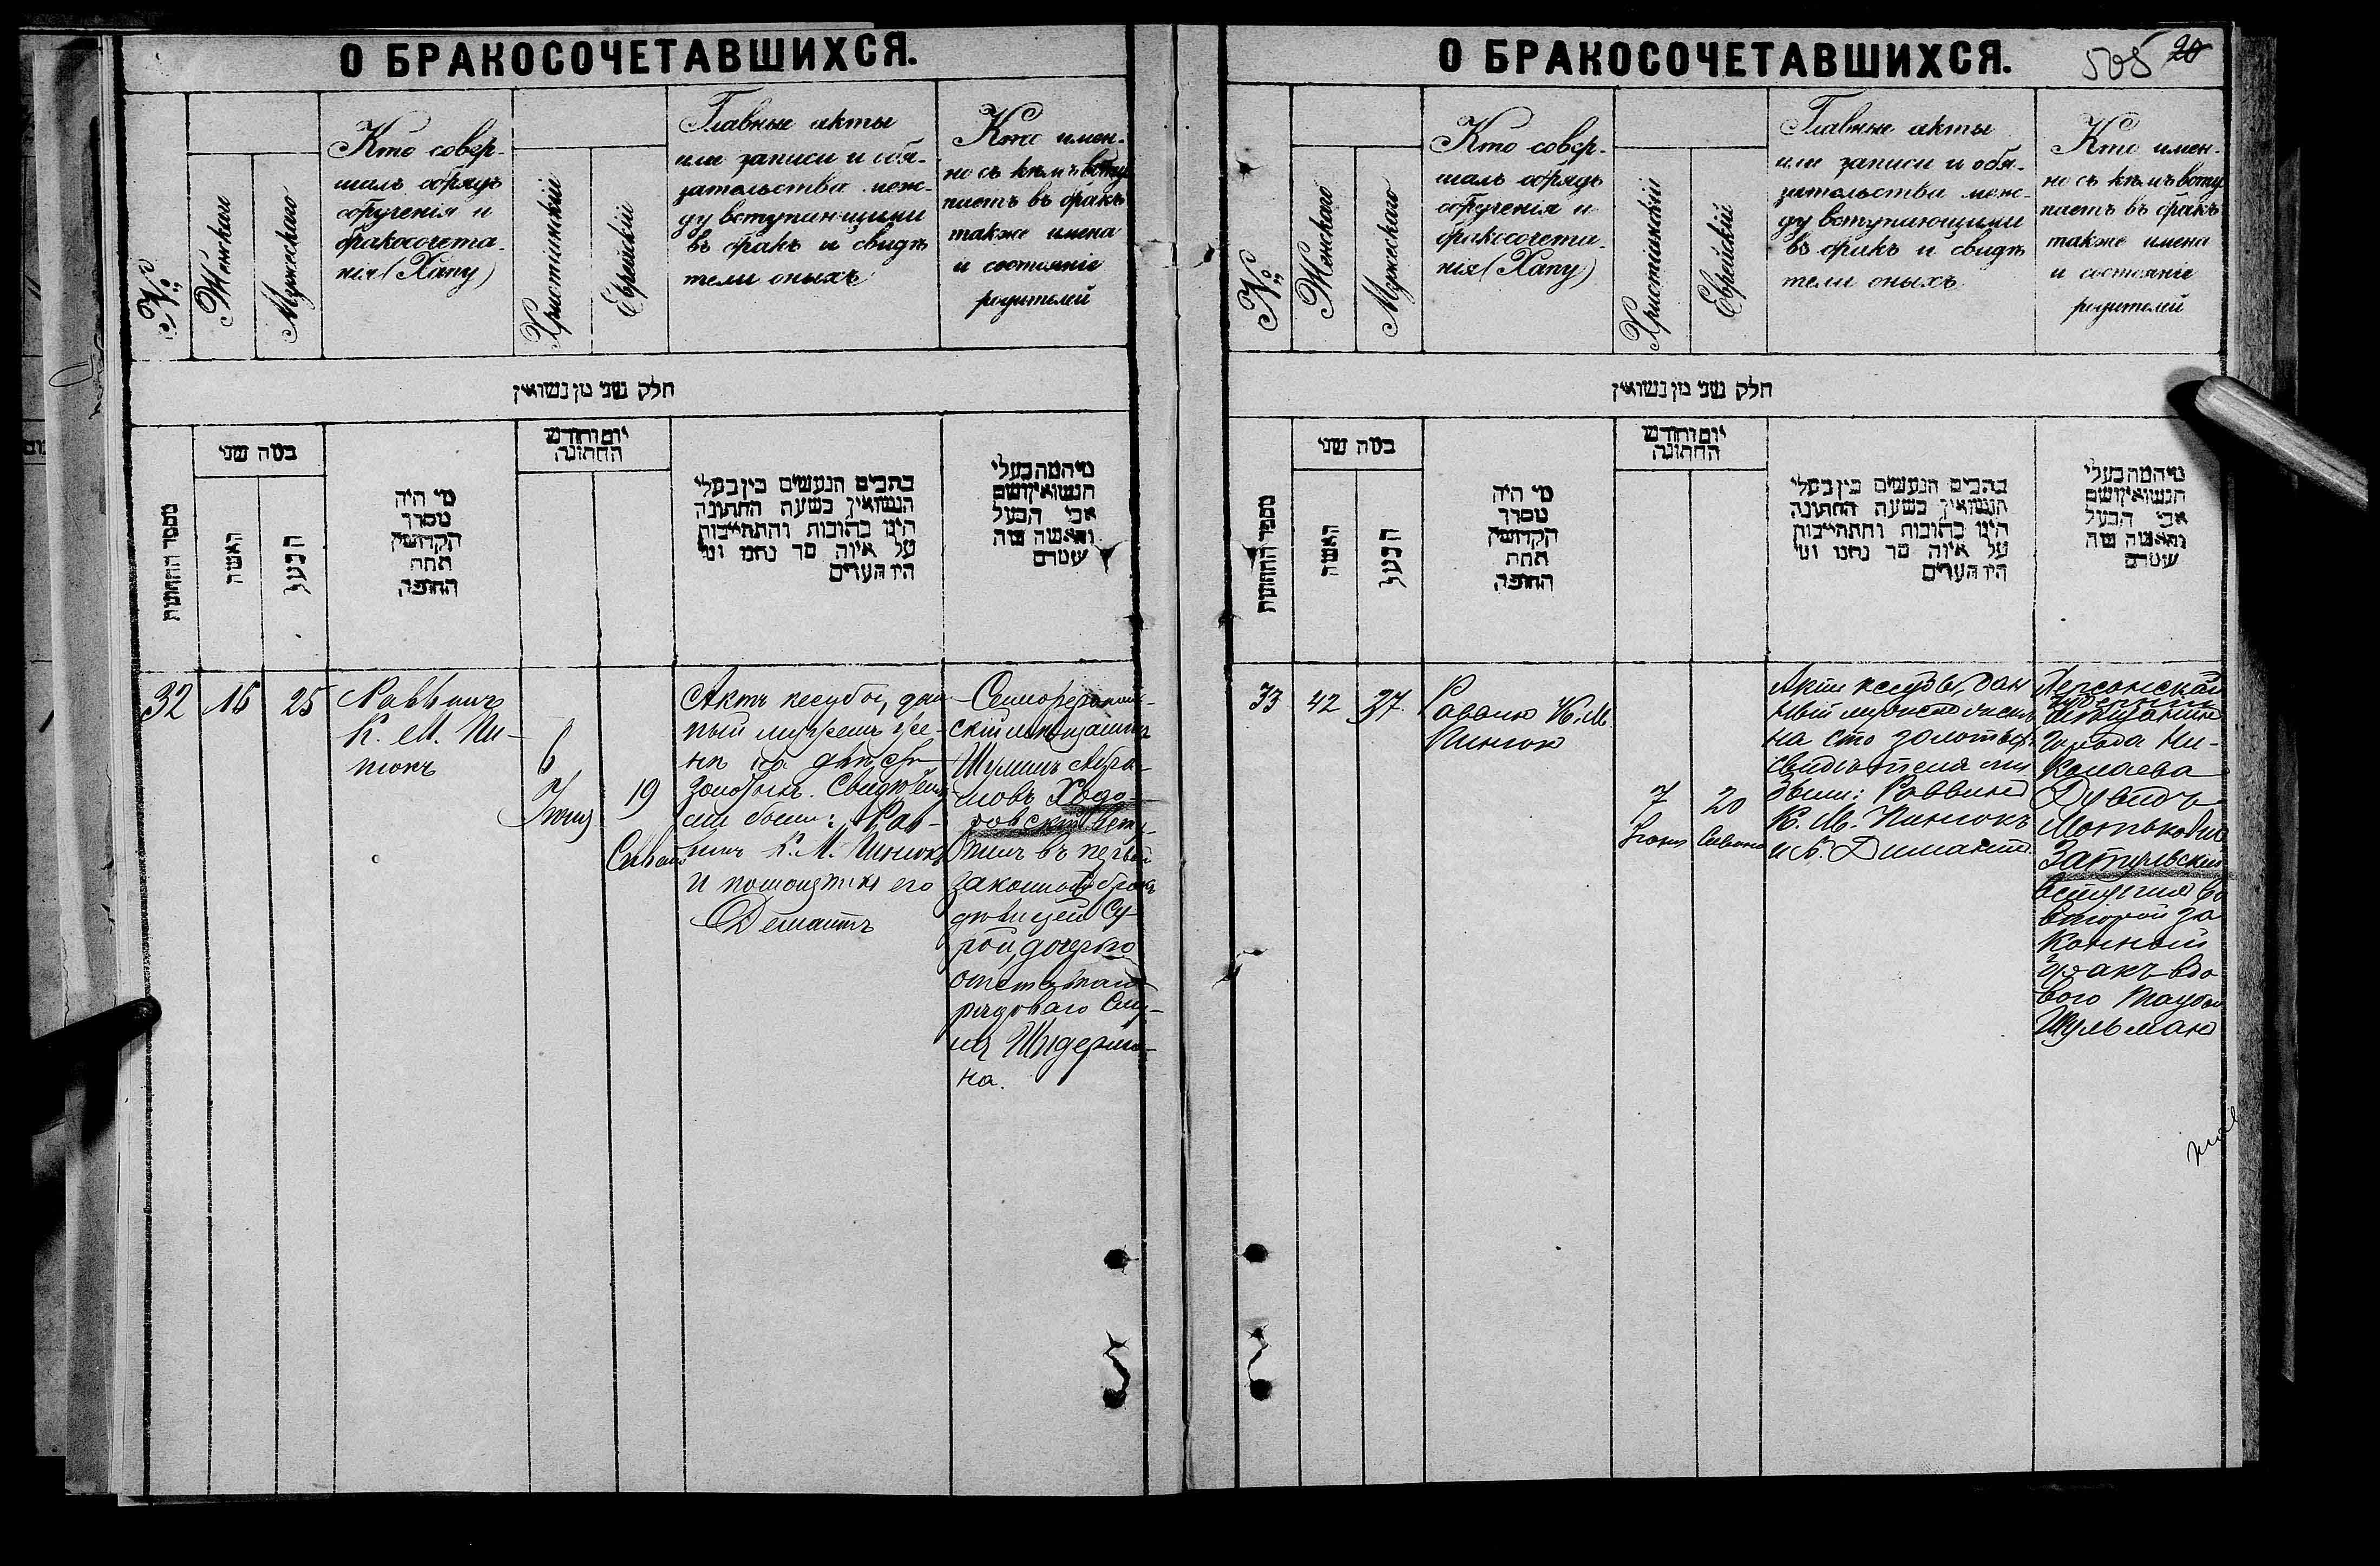 О БРАКОСОЧЕТАВШИХСЯ.
№
Женскаго
Мужескаго
Кто совер-
шалъ обрядъ
обрученія и
бракосочета-
нія (Хапу)
Христіанскій
Еврейскій
Главные акты
или записи и обя-
зательства меж-
ду вступающими
въ бракъ и свидѣ
тели оныхъ
Кто имен-
но съ кѣмъ всту
паетъ въ бракъ
также имена
и состояніе
родителей
חלק שני מן נשואין
מספר החתונות
במה שני
האשה
הבעל
מי היה
מסדר
הקדושין
תחת
החופה
יום וחודש
החתונה
כתבים הנעשים בין בעלי
הנשואין בשעת החתונה
היינו כתובות והתחייבות
על איזה סך נתנו ומי
היו העדים
מי המה בעלי
הנשואין ושם
אבי הבעל
והאשה מה
שמדם
32
16
25
Раввинъ
К. М. Пи-
нюкъ
6
Іюня
19
Сивонъ
Актъ кесубы, дан
ный мужемъ же-
нѣ на двѣсти
золотыхъ. Свидѣтеля
ми были: Рав-
винъ К. М. Пинюкъ
и помощникъ его
Демантъ
Симферополь-
скій мѣщанинъ
Шулимъ Абра-
мовъ Ходо-
ровскій всту-
пилъ въ первый
законный бракъ
съ дѣвицей Су-
рой, дочерью
отставнаго
рядоваго
Шидерма-
на.
О БРАКОСОЧЕТАВШИХСЯ.
505 20
№
Женскаго
Мужескаго
Кто совер-
шалъ обрядъ
обрученія и
бракосочета-
нія (Хапу)
Христіанскій
Еврейскій
Главные акты
или записи и обя-
зательства меж-
ду вступающими
въ бракъ и свидѣ
тели оныхъ
Кто имен-
но съ кѣмъ всту
паетъ въ бракъ
также имена
и состояніе
родителей
חלק שני מן נשואין
מספר החתונות
במה שני
האשה
הבעל
מי היה
מסדר
הקדושין
תחת
החופה
יום וחודש
החתונה
כתבים הנעשים בין בעלי
הנשואין בשעת החתונה
היינו כתובות והתחייבות
על איזה סך נתנו ומי
היו העדים
מי המה בעלי
הנשואין ושם
אבי הבעל
והאשה מה
שמדם
33
42
37.
Раввин К. М.
Пинюк
7
Іюня
20
Сивона
Актъ кесубы, дан
ный мужемъ женѣ
на сто золотыхъ
свидѣтелями
были: Раввинъ
К. М. Пинюкъ
и Б. Димантъ
Херсонской
губерніи
мѣщанинъ
города Ни-
колаева
Дувидъ
Мотьковъ
Затульскій
вступилъ во
второй за
конный
бракъ вдо
вою Таубой
Шульманъ